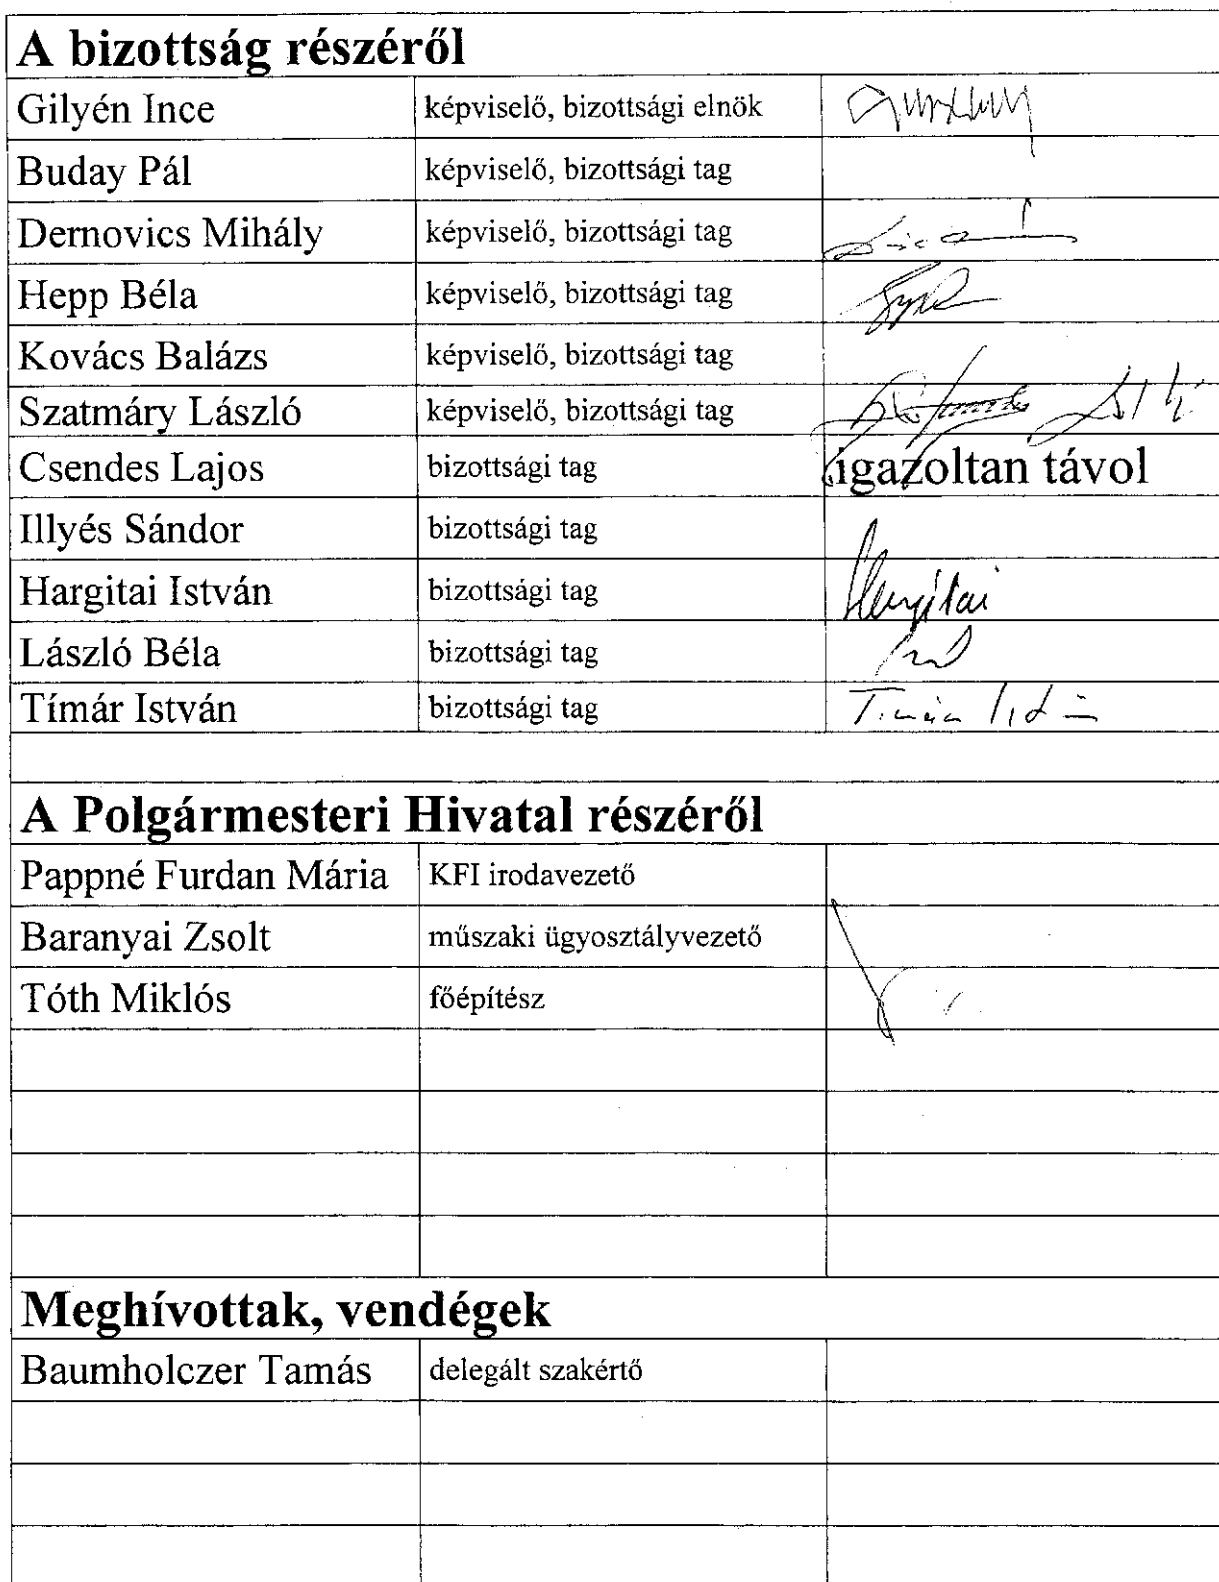 A bizottság részéről
Gilyén Ince képviselő, bizottsági elnök
Buday Pál képviselő, bizottsági tag
Dernovics Mihály képviselő, bizottsági tag
Hepp Béla képviselő, bizottsági tag
Kovács Balázs képviselő, bizottsági tag
Szatmáry László képviselő, bizottsági tag
Csendes Lajos bizottsági tag igazoltan távol
Illyés Sándor bizottsági tag
Hargitai István bizottsági tag Hargitai
László Béla bizottsági tag
Tímár István bizottsági tag
A Polgármesteri Hivatal részéről
Pappné Furdan Mária KFI irodavezető
Baranyai Zsolt műszaki ügyosztályvezető
Tóth Miklós főépítész
Meghívottak, vendégek
Baumholczer Tamás delegált szakértő